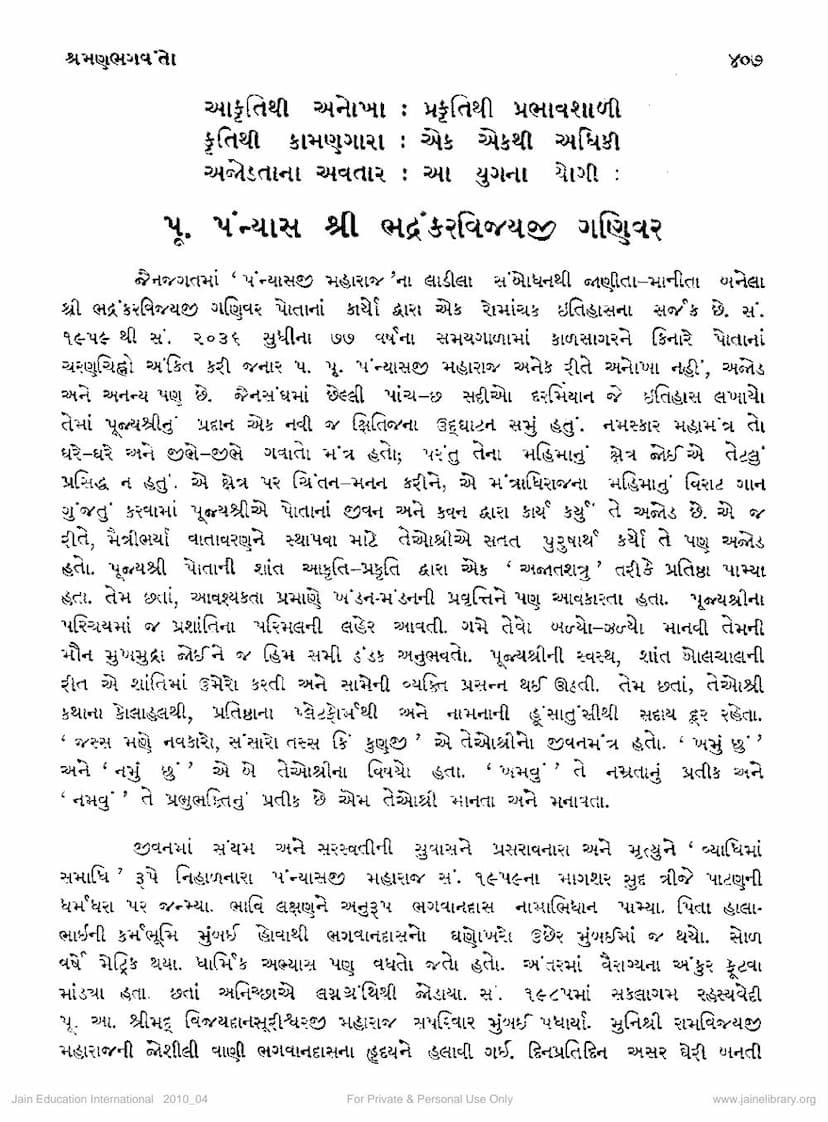 શ્રમણભગવંતો
૪૦૭
આકૃતિથી અનોખા : પ્રકૃતિથી પ્રભાવશાળી
કૃતિથી કામણગારા : એક એકથી અધિકી
અજોડતાના અવતાર : આ યુગના યોગી :
પૂ. પંન્યાસ શ્રી ભદ્રંકરવિજયજી ગણિવર
જૈનજગતમાં ‘ પંન્યાસજી મહારાજ ’ના લાડીલા સંબોધનથી જાણીતા–માનીતા બનેલા
શ્રી ભદ્રંકરવિજયજી ગણિવર પોતાનાં કાર્યો દ્વારા એક રોમાંચક ઇતિહાસના સર્જક છે. સં.
૧૯૫૯ થી સં. ૨૦૩૬ સુધીના ૭૭ વર્ષના સમયગાળામાં કાળસાગરને કિનારે પોતાનાં
ચરણચિહ્નો અંકિત કરી જનાર પ. પૂ. પંન્યાસજી મહારાજ અનેક રીતે અનોખા નહીં, અજોડ
અને અનન્ય પણ છે. જૈનસંઘમાં છેલ્લી પાંચ–છ સદીઓ દરમિયાન જે ઇતિહાસ લખાયો
તેમાં પૂજ્યશ્રીનું પ્રદાન એક નવી જ ક્ષિતિજના ઉદ્‌ઘાટન સમું હતું. નમસ્કાર મહામંત્ર તો
ઘરે–ઘરે અને જીભે–જીભે ગવાતો મંત્ર હતો; પરંતુ તેના મહિમાનું ક્ષેત્ર જોઈએ તેટલું
પ્રસિદ્ધ ન હતું. એ ક્ષેત્ર પર ચિંતન–મનન કરીને, એ મંત્રાધિરાજના મહિમાનું વિરાટ ગાન
ગુંજતું કરવામાં પૂજ્યશ્રીએ પોતાનાં જીવન અને કવન દ્વારા કાર્ય કર્યું તે અજોડ છે. એ જ
રીતે, મૈત્રીભર્યા વાતાવરણને સ્થાપવા માટે તેઓશ્રીએ સતત પુરુષાર્થ કર્યો તે પણ અજોડ
હતો. પૂજ્યશ્રી પોતાની શાંત આકૃતિ–પ્રકૃતિ દ્વારા એક ‘ અજાતશત્રુ ’ તરીકે પ્રતિષ્ઠા પામ્યા
હતા. તેમ છતાં, આવશ્યકતા પ્રમાણે ખંડન-મંડનની પ્રવૃત્તિને પણ આવકારતા હતા. પૂજ્યશ્રીના
પરિચયમાં જ પ્રશાંતિના પરિમલની લહેર આવતી. ગમે તેવો બળ્યો–ઝળ્યો માનવી તેમની
મૌન મુખમુદ્રા જોઈને જ હિમ સમી ઠંડક અનુભવતો. પૂજ્યશ્રીની સ્વસ્થ, શાંત બોલચાલની
રીત એ શાંતિમાં ઉમેરો કરતી અને સામેની વ્યક્તિ પ્રસન્ન થઈ ઊઠતી. તેમ છતાં, તેઓશ્રી
કથાના કોલાહલથી, પ્રતિષ્ઠાના પ્લેટફોર્મથી અને નામનાની હૂંસાતુંસીથી સદાય દૂર રહેતા.
‘ જસ્સ મણે નવકારો, સંસારો તસ્સ કિં કુણુજી ’ એ તેઓશ્રીનો જીવનમંત્ર હતો. ‘ ખમું છું ’
અને ‘ નમું છું ’ એ બે તેઓશ્રીના વિષયો હતા. ‘ ખમવું ’ તે નમ્રતાનું પ્રતીક અને
‘ નમવું ’ તે પ્રભુભક્તિનું પ્રતીક છે એમ તેઓશ્રી માનતા અને મનાવતા.
જીવનમાં સંયમ અને સરસ્વતીની સુવાસને પ્રસરાવનારા અને મૃત્યુને ‘ વ્યાધિમાં
સમાધિ ’ રૂપે નિહાળનારા પંન્યાસજી મહારાજ સં. ૧૯૫૯ના માગશર સુદ ત્રીજે પાટણની
ધર્મધરા પર જન્મ્યા. ભાવિ લક્ષણને અનુરૂપ ભગવાનદાસ નામાભિધાન પામ્યા. પિતા હાલા-
ભાઈની કર્મભૂમિ મુંબઈ હોવાથી ભગવાનદાસનો ઘણોખરો ઉછેર મુંબઈમાં જ થયો. સોળ
વર્ષે મેટ્રિક થયા. ધાર્મિક અભ્યાસ પણ વધતો જતો હતો. અંતરમાં વૈરાગ્યના અંકુર ફૂટવા
માંડ્યા હતા. છતાં અનિચ્છાએ લગ્નગ્રંથિથી જોડાયા. સં. ૧૯૮૫માં સકલાગમ રહસ્યવેદી
પૂ. આ. શ્રીમદ્ વિજયદાનસૂરીશ્વરજી મહારાજ સપરિવાર મુંબઈ પધાર્યા. મુનિશ્રી રામવિજયજી
મહારાજની જોશીલી વાણી ભગવાનદાસના હૃદયને હલાવી ગઈ. દિનપ્રતિદિન અસર ઘેરી બનતી
Jain Education International 2010_04
For Private & Personal Use Only
www.jainelibrary.org